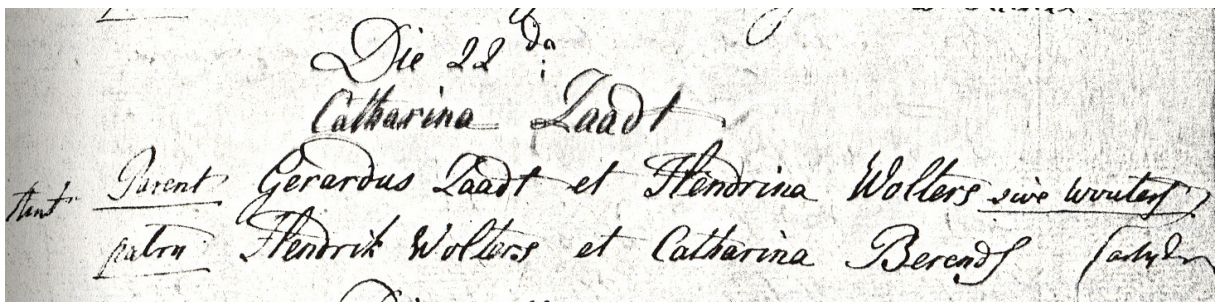 Die 22 da
Catharina Zaadt
Parent Gerardus Zaadt et Hendrina Wolters sive wouters
patrn Hendrik Wolters et Catharina Berends